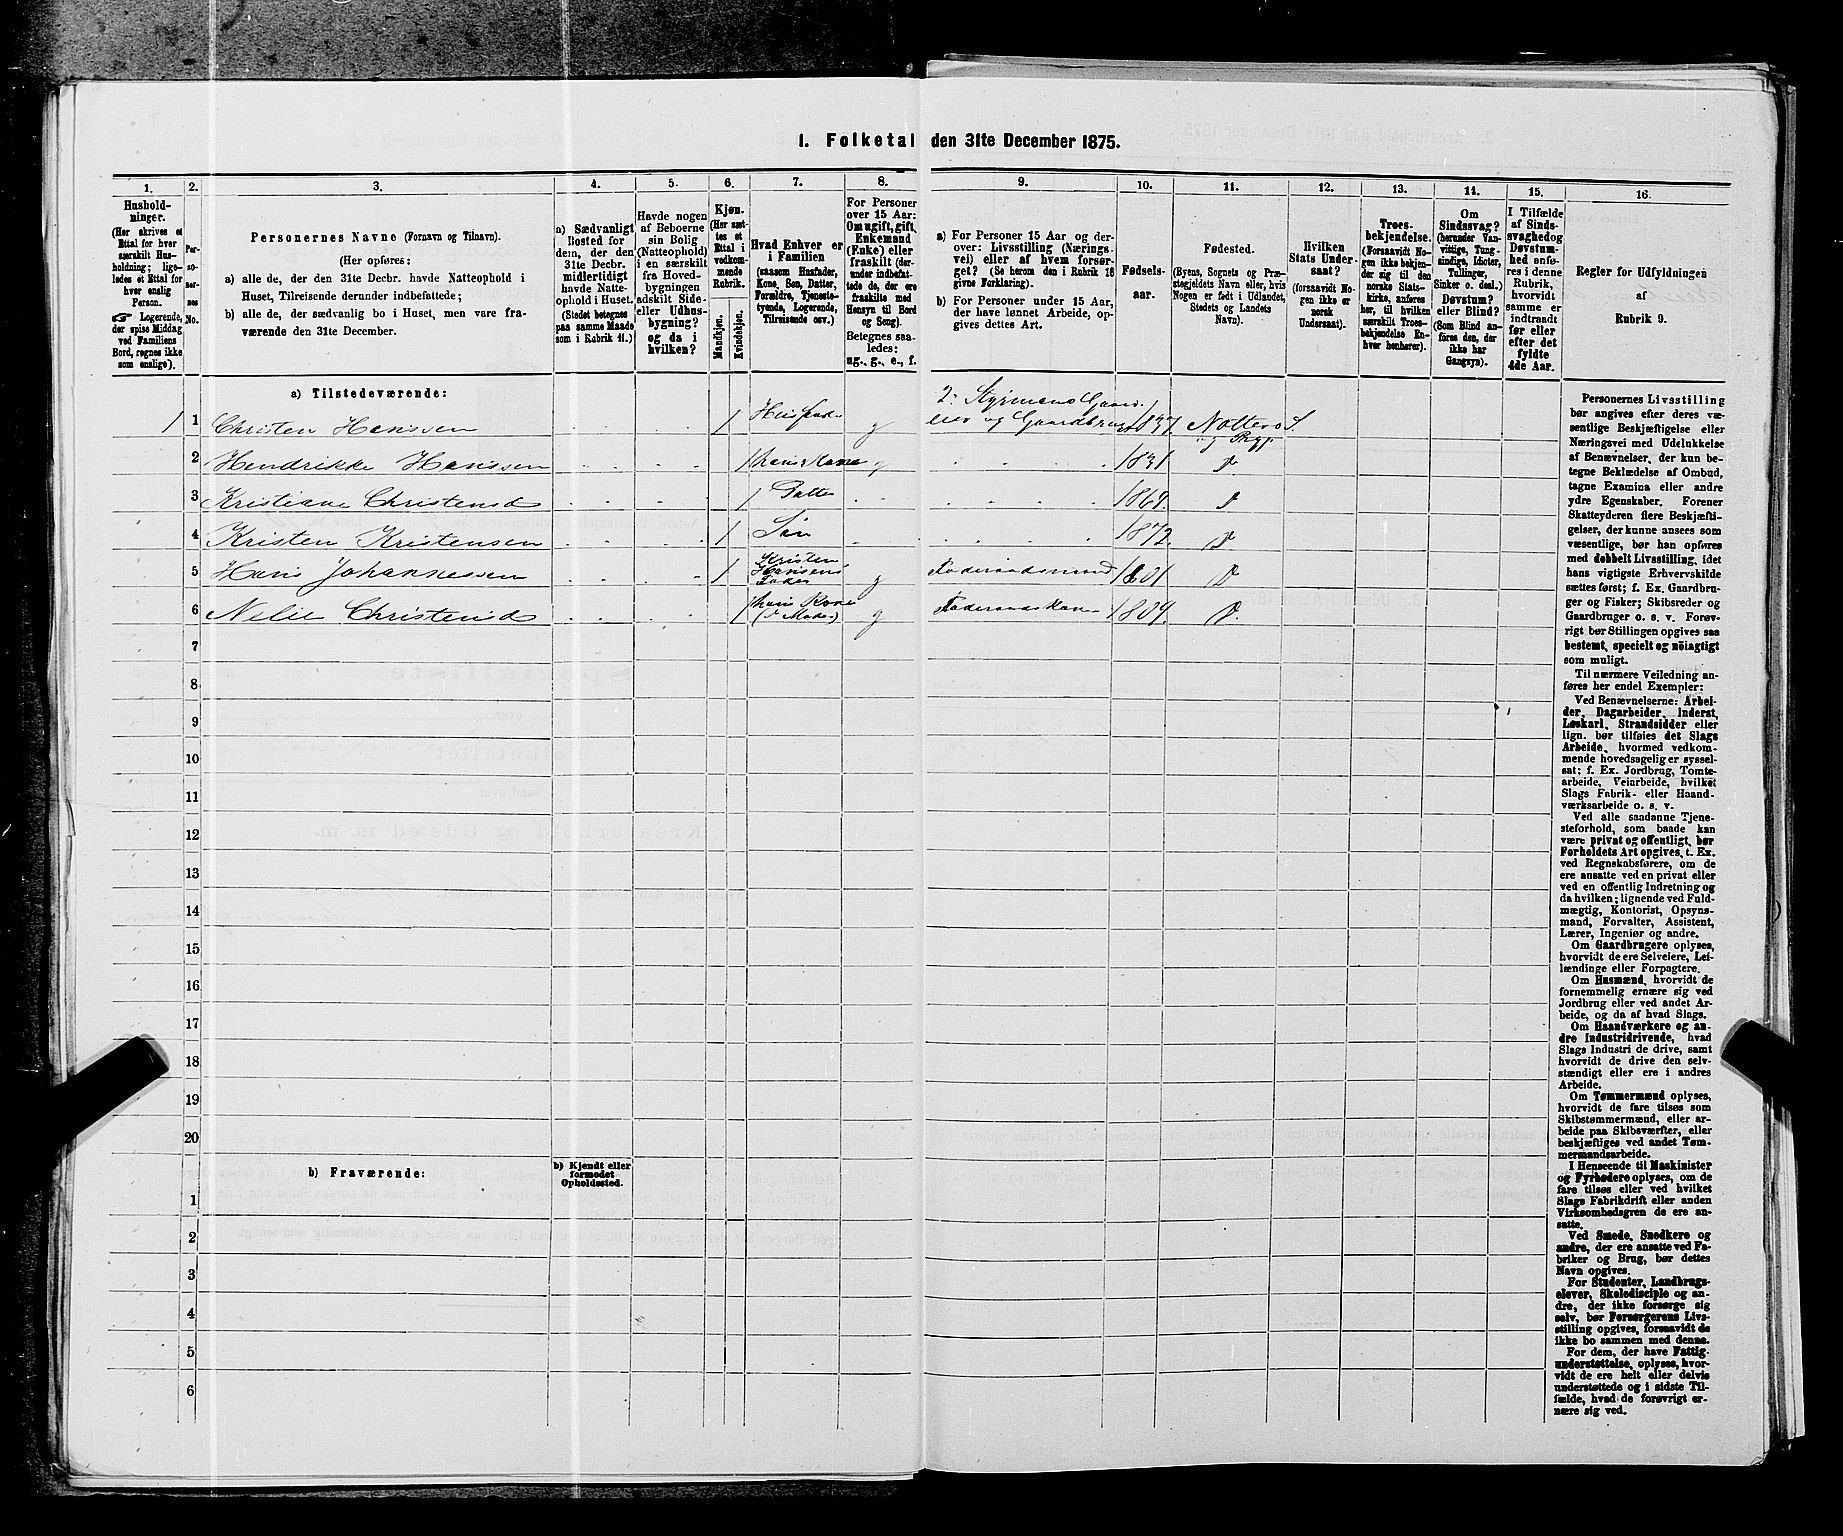 1. Folketal den 31te December 1875.
1.
2.
3.
4.
5.
6.
7.
8.
9.
10.
11.
12.
13.
14.
15.
16.
Hushold-
ninger.
(Her skrives et
Ettal for hver
særskilt Hus-
holdning; lige-
ledes et Ettal for
hver enslig
Person.
☞ Logerende,
der spise Middag
ved Familiens
Bord, regnes ikke
som enslige).
Per-
so-
ner-
nes
No.
Personernes Navne (Fornavn og Tilnavn).
(Her opføres:
a) alle de, der den 31te Decbr. havde Natteophold i
Huset, Tilreisende derunder indbefattede;
b) alle de, der sædvanlig bo i Huset, men vare fra-
værende den 31te December.
a) Sædvanligt
Bosted for
dem, der den
31te Decbr.
midlertidigt
havde Natte-
ophold i Huset.
(Stedet betegnes
paa samme Maade
som i Rubrik 11.)
Havde nogen
af Beboerne
sin Bolig
(Natteophold)
i en særskilt
fra Hoved-
bygningen
adskilt Side-
eller Udhus-
bygning?
og da i
hvilken?
Kjøn.
(Her sæt-
tes et
Ettal i
vedkom-
mende
Rubrik.
Mandkjøn.
Kvindekjøn.
Hvad Enhver er
i Familien
(saasom Husfader,
Kone, Søn, Datter,
Forældre, Tjeneste-
tyende, Logerende,
Tilreisende osv.)
For Personer
over 15 Aar:
Om ugift, gift,
Enkemand
(Enke) eller
fraskilt (der-
under indbefat-
tede de, der ere
fraskilte med
Hensyn til Bord
og Seng).
Betegnes saa-
ledes:
ug., g., e., f.
a) For Personer 15 Aar og der-
over: Livsstilling (Nærings-
vei) eller af hvem forsør-
get? (Se herom den i Rubrik 16
givne Forklaring).
b) For Personer under 15 Aar,
der have lønnet Arbeide, op-
gives dettes Art.
Fødsels-
aar.
Fødested.
(Byens, Sognets og Præ-
stegjeldets Navn eller, hvis
Nogen er født i Udlandet,
Stedets og Landets
Navn).
Hvilken
Stats Under-
saat?
(forsaavidt No-
gen ikke er
norsk
Undersaat).
Troes-
bekjendelse.
(Forsaavidt No-
gen ikke bekjen-
der sig til den
norske Stats-
kirke, anføres
her, til hvilken
særskilt Troes-
bekjendelse En-
hver henhører).
Om
Sindssvag?
(herunder Van-
vittige, Tung-
sindige, Idioter,
Tullinger,
Sinker o. desl.)
Døvstum?
eller Blind?
(Som Blind an-
føres den, der
ikke har
Gangsyn).
I Tilfælde
af Sinds-
svaghed og
Døvstum-
hed anfø-
res i denne
Rubrik,
hvorvidt
samme er
indtraadt
før eller
efter det
fyldte
4de Aar.
Regler for Udfyldningen
af
Rubrik 9.
a) Tilstedeværende:
1 1 Christen Hanssen 1 Husfader g 2. Styrmand Gaard-
eier og Gaardbruger 1837. Nøtterø S.
og Prgj.
2 Hendrikke Hanssen 1 hans Kone g 1831 D
3 Kristiane Christensd 1 Datter D
4 Kristen Kristensen 1 Søn 1872. D
5 Hans Johannessen 1 Kristen
Hansens
Fader g Føderaadsmand 1801 D
6 Nelie Christensd 1 hans Kone
(Moder) g Føderaadskone 1809. D.
7
8
9
10
11
12
13
14
15
16
17
18
19
20
b) Fraværende:
b) Kjendt eller
formodet
Opholdssted.
1
2
3
4
5
6
Personernes Livsstilling
bør angives efter deres væ-
sentlige Beskjæftigelse eller
Næringsvei med Udelukkelse
af Benævnelser, der kun be-
tegne Beklædelse af Ombud,
tagne Examina eller andre
ydre Egenskaber. Forener
Skatteyderen flere Beskjæfti-
gelser, der kunne ansees som
væsentlige, bør han opføres
med dobbelt Livsstilling, idet
hans vigtigste Erhvervskilde
sættes først; f. Ex. Gaardbru-
ger og Fisker; Skibsreder og
Gaardbruger o. s. v. Forøv-
rigt bør Stillingen opgives saa
bestemt, specielt og nöiagtigt
som muligt.
Til nærmere Veiledning an-
føres her endel Exempler:
Ved Benævnelserne: Arbei-
der, Dagarbeider, Inderst,
Løskarl, Strandsidder eller
lign. bør tilføies det Slags
Arbeide, hvormed vedkom-
mende hovedsagelig er syssel-
sat; f. Ex. Jordbrug, Tomte-
arbeide, Veiarbeide, hvilket
Slags Fabrik- eller Haand-
værksarbeide o. s. v.
Ved alle saadanne Tjene-
steforhold, som baade kan
være privat og offentligt, bør
Forholdets Art opgives, t. Ex.
ved Regnskabsførere, om de
ere ansatte ved en privat eller
ved en offentlig Indretning og
da hvilken; lignende ved Fuld-
mægtig, Kontorist, Opsyns-
mand, Forvalter, Assistent,
Lærer, Ingeniør og andre.
Om Gaardbrugere oplyses,
hvorvidt de ere Selveiere, Lei-
lændinge eller Forpagtere.
Om Husmænd, hvorvidt de
fornemmelig ernære sig ved
Jordbrug eller ved andet Ar-
beide, og da af hvad Slags.
Om Haandværkere og an-
dre Industridrivende, hvad
Slags Industri de drive, samt
hvorvidt de drive den selv-
stændigt eller ere i andres
Arbeide.
Om Tømmermænd oplyses,
hvorvidt de fare tilsøs som
Skibstømmermænd, eller ar-
beide paa Skibsværfter, eller
beskjæftiges ved andet Tøm-
mermandsarbeide.
I Henseende til Maskinister
og Fyrbødere oplyses, om de
fare tilsøs eller ved hvilket
Slags Fabrikdrift eller anden
Virksomhedsgren de ere an-
satte.
Ved Smede, Snedkere og
andre, der ere ansatte ved Fa-
briker og Brug, bør dettes
Navn opgives.
For Studenter, Landbrugs-
elever, Skoledisciple og an-
dre, der ikke forsørge sig
selv, bør Forsørgerens Livs-
stilling opgives, forsaavidt de
ikke bo sammen med denne.
For dem, der have Fattig-
understøttelse, oplyses, hvor-
vidt de ere helt eller delvis
understøttede og i sidste Til-
fælde, hvad de forøvrigt er-
nære sig ved.